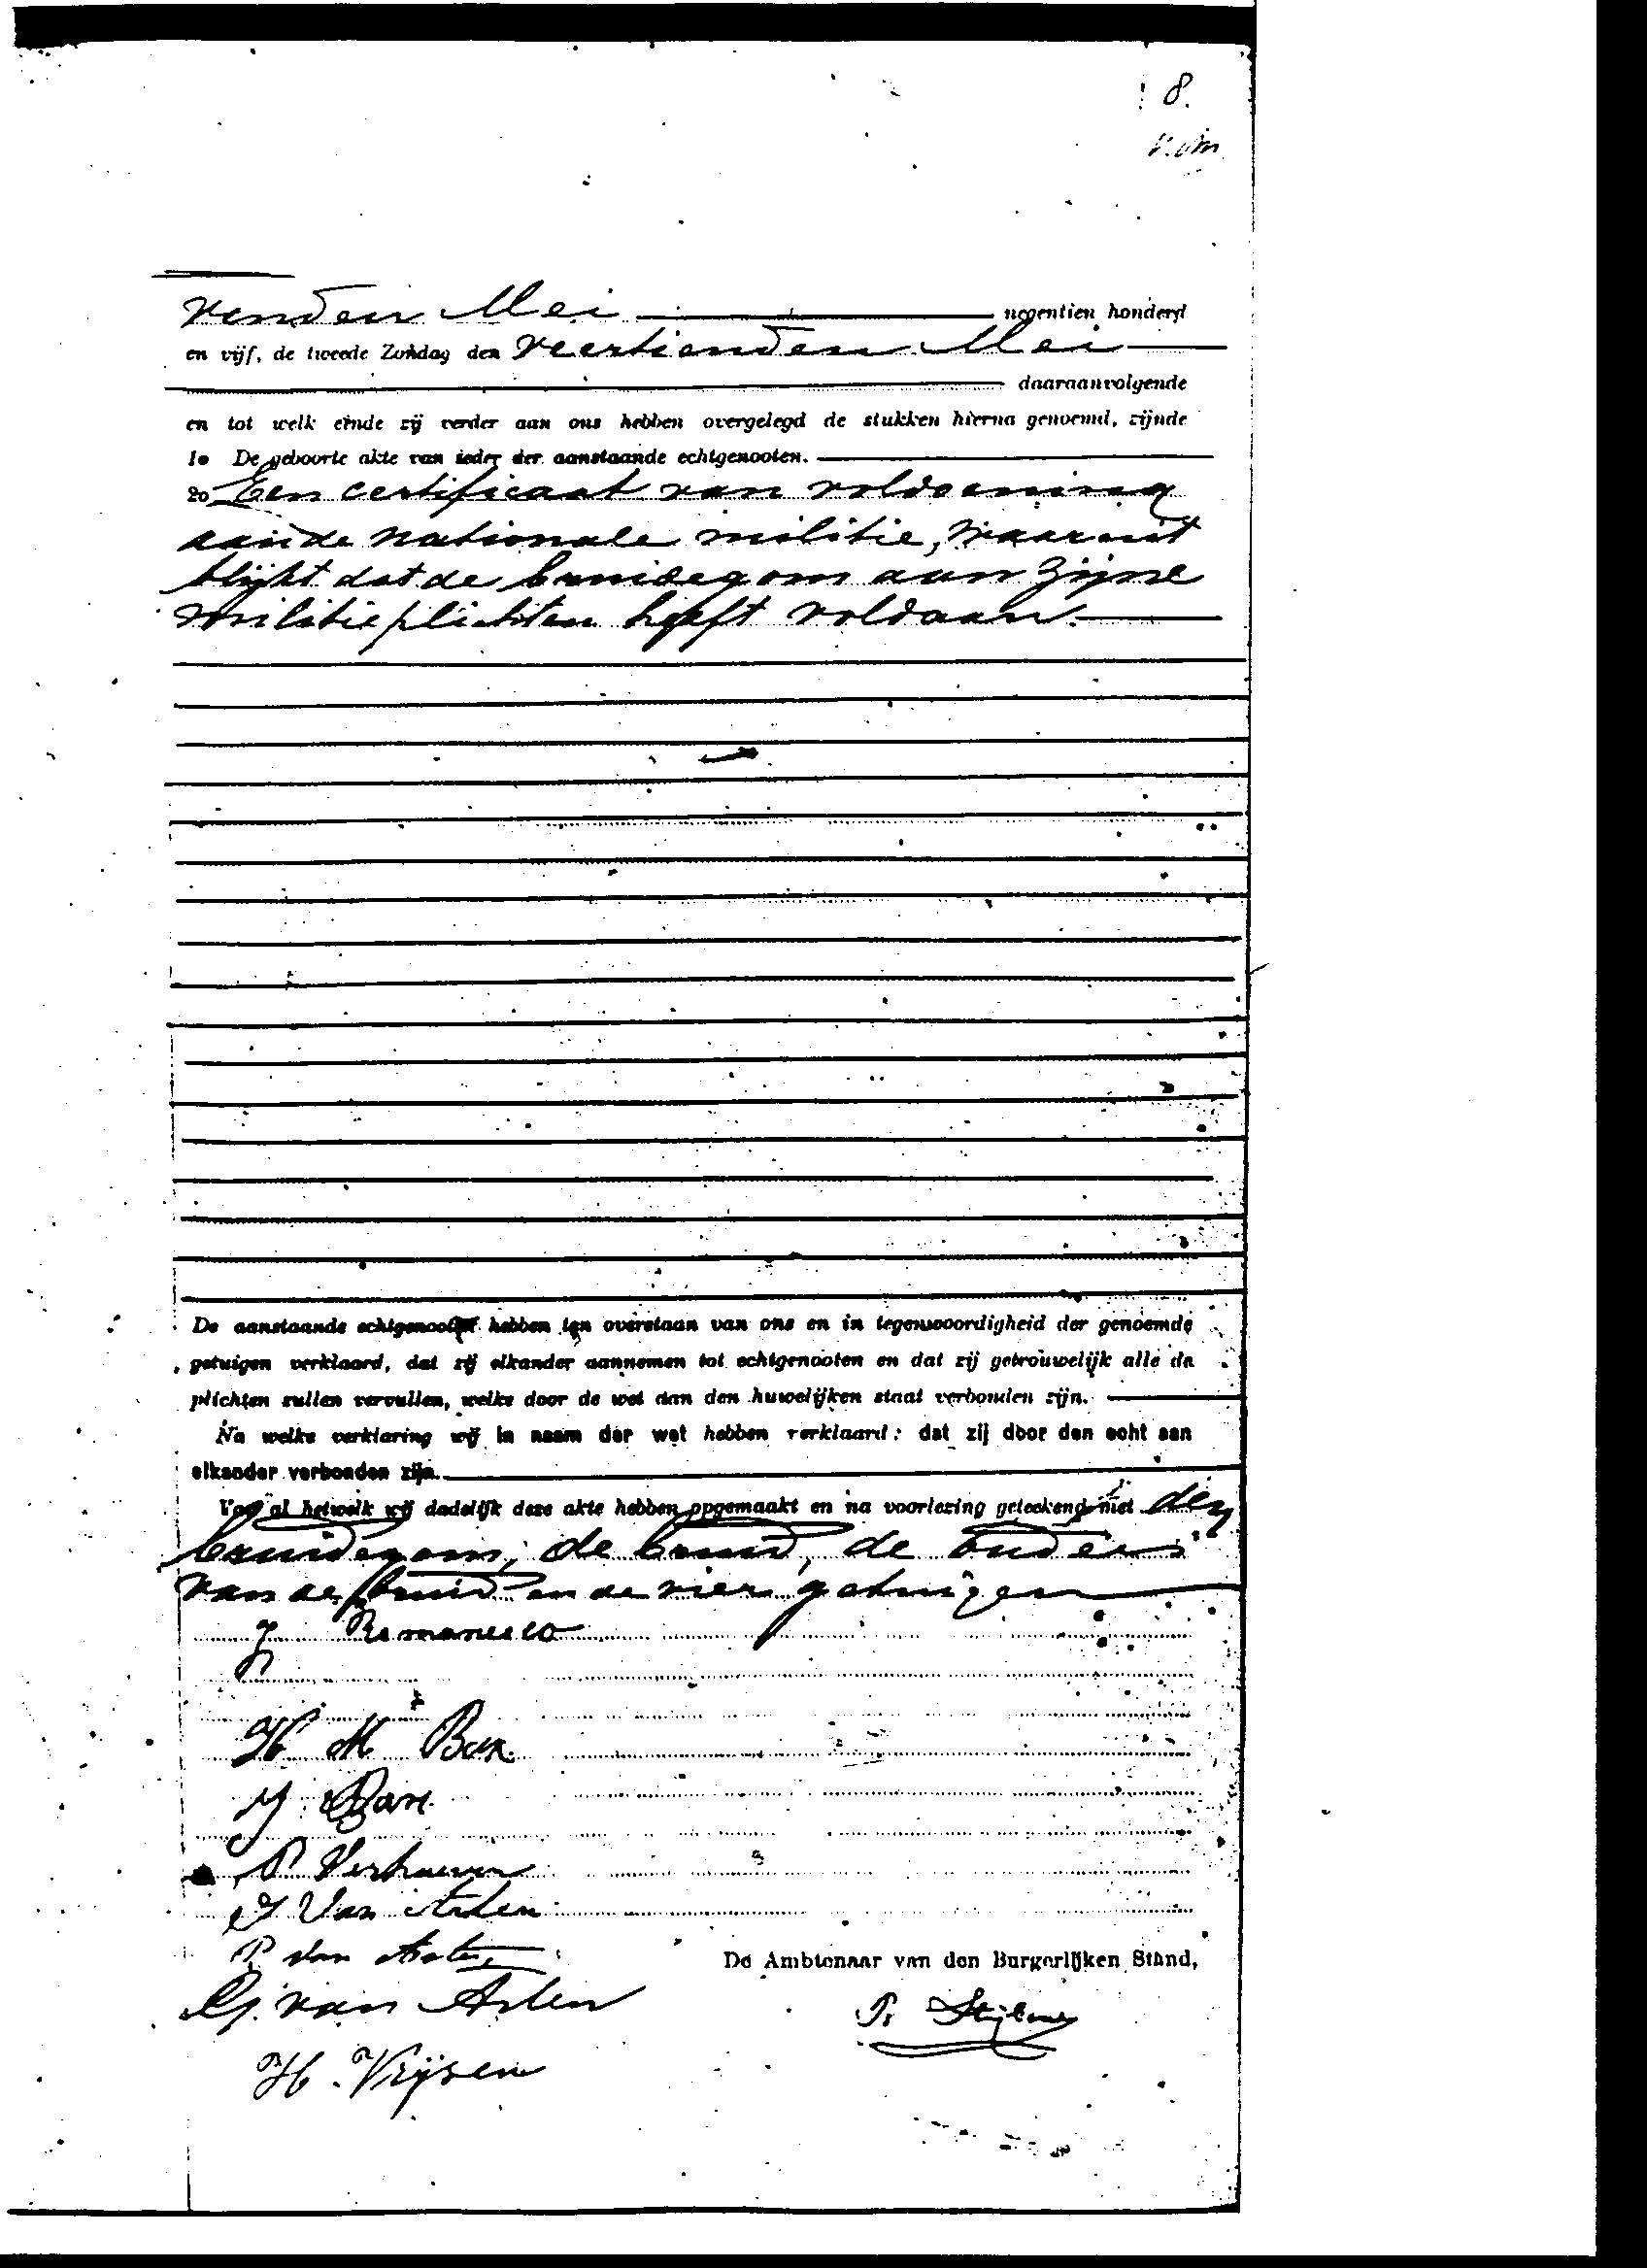 8.
venden Mei negentien honderd
en vijf, de tweede Zondag den veertienden Mei
daaraanvolgende
en tot welk einde zij verder aan ons hebben overgelegd de stukken hierna genoemd, zijnde
1o De geboorte akte van ieder der aanstaande echtgenooten.
2o Een certificaat van voldoening
aan de nationale militie, waaruit
blijkt dat de bruidegom aan zijne
militieplichten heeft voldaan.
De aanstaande echtgenooten hebben ten overstaan van ons en in tegenwoordigheid der genoemde
getuigen verklaard, dat zij elkander aannemen tot echtgenooten en dat zij getrouwelijk alle de
plichten zullen vervullen, welke door de wet aan den huwelijken staat verbonden zijn.
Na welke verklaring wij in naam der wet hebben verklaard: dat zij door den echt aan
elkander verbonden zijn.
Van al hetwelk wij dadelijk deze akte hebben opgemaakt en na voorlezing geteekend met den
bruidegom, de bruid, de ouders
van de bruid en de vier getuigen
J Romanesco
H M Bax
J Bax
P Verhoeven
J Van Asten
P van Asten
G. van Asten
De Ambtenaar van den Burgerlijken Stand,
H. Vrijsen